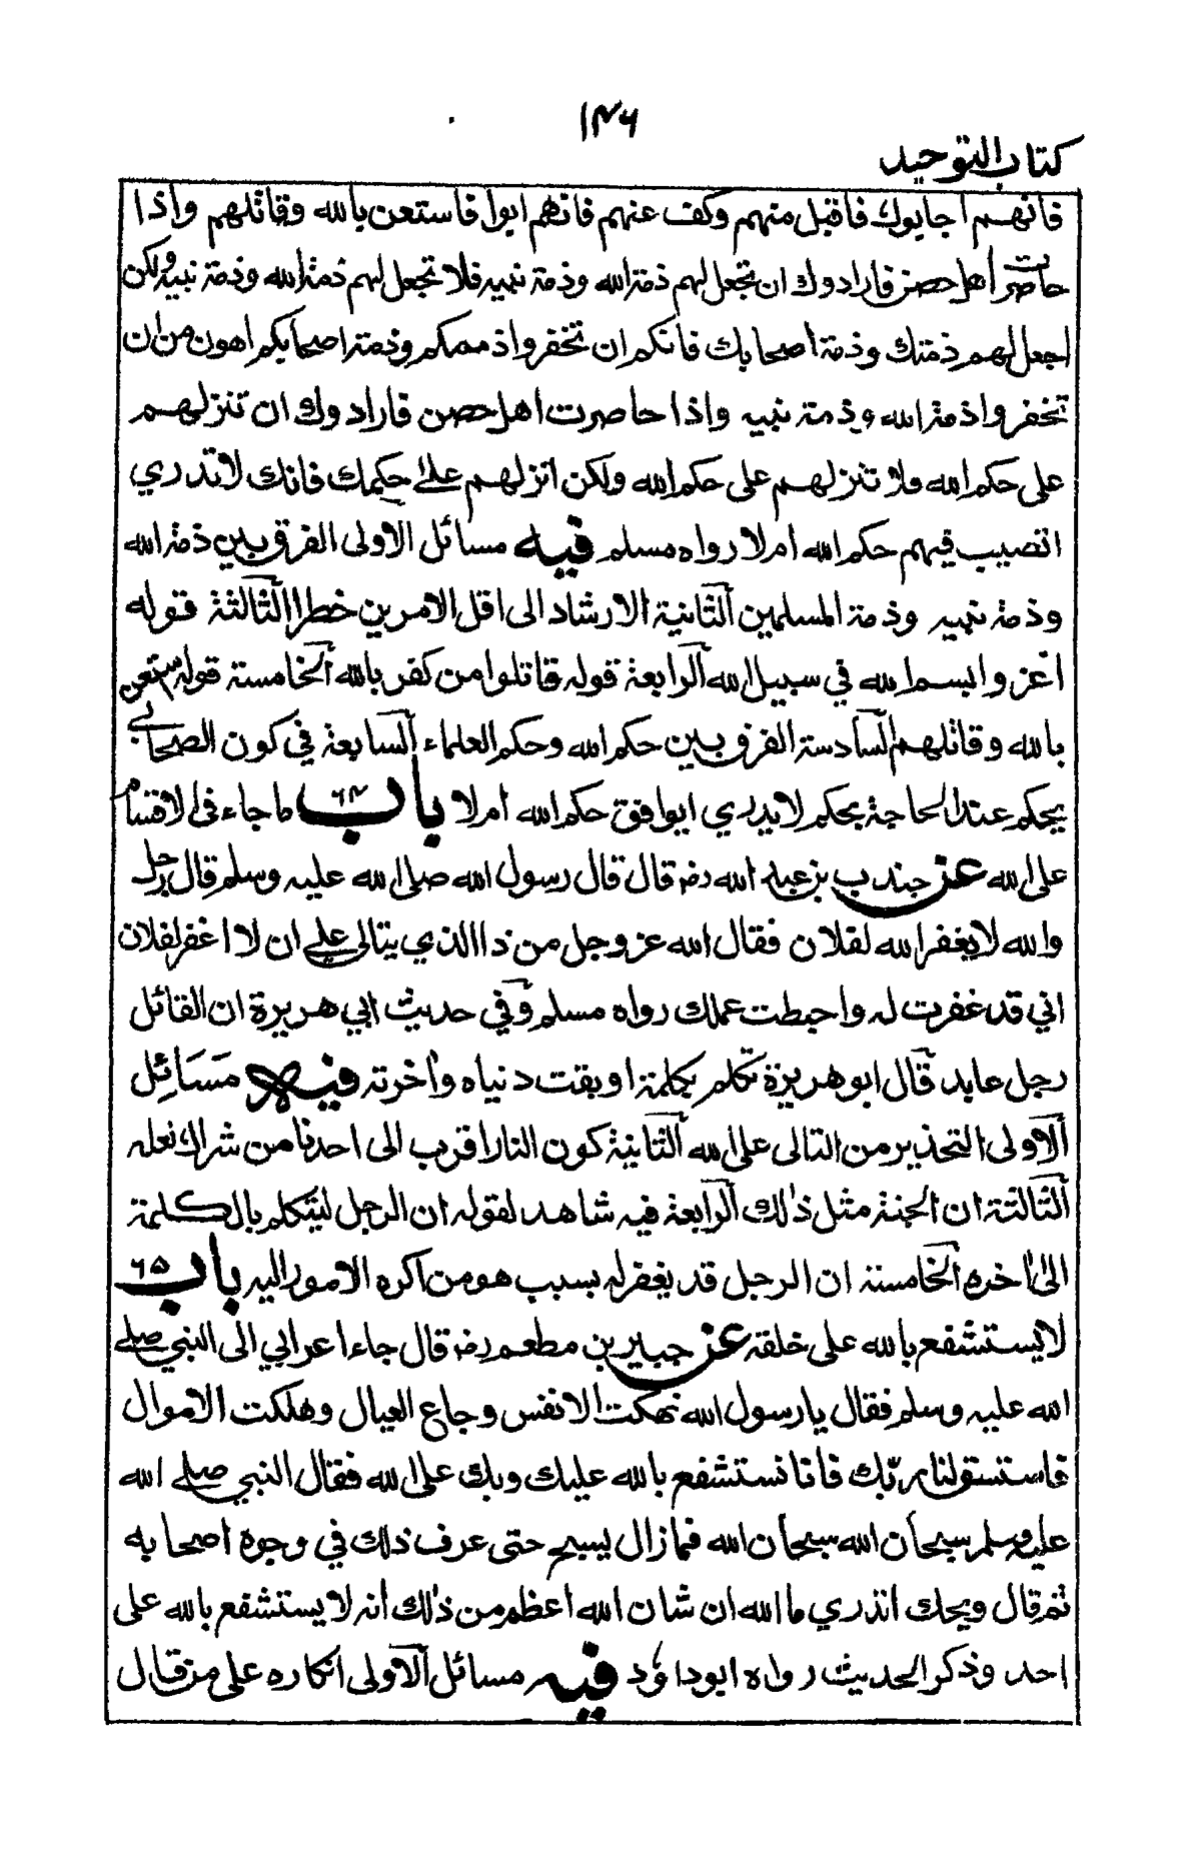 ١٤٦
كتاب التوحيد
فانهم اجابوك فاقبل منهم وكف عنهم فانهم ابوا فاستعن بالله وقاتلهم واذا
حاصرت اهل حصن فارادوك ان تجعل لهم ذمة الله وذمة نبيه فلا تجعل لهم ذمة الله وذمة نبيه ولكن
اجعل لهم ذمتك وذمة اصحابك فانكم ان تخفروا ذممكم وذمة اصحابكم اهون من ان
تخفروا ذمة الله وذمة نبيه واذا حاصرت اهل حصن فارادوك ان تنزلهم
على حكم الله فلا تنزلهم على حكم الله ولكن انزلهم على حكمك فانك لا تدري
اتصيب فيهم حكم الله ام لا رواه مسلم فيه مسائل الاولى الفرق بين ذمة الله
وذمة نبيه وذمة المسلمين الثانية الارشاد الى اقل الامرين خطرا الثالثة قوله
اغزوا بسم الله في سبيل الله الرابعة قوله قاتلوا من كفر بالله الخامسة قوله استعن
بالله وقاتلهم السادسة الفرق بين حكم الله وحكم العلماء السابعة في كون الصحابي
يحكم عند الحاجة بحكم لا يدري ايوافق حكم الله ام لا باب ٦٤ ما جاء في الاقسام
على الله عن جندب بن عبد الله رضه قال قال رسول الله صلى الله عليه وسلم قال رجل
والله لا يغفر الله لفلان فقال الله عز وجل من ذا الذي يتالى علي ان لا اغفر لفلان
اني قد غفرت له واحبطت عملك رواه مسلم وفي حديث ابي هريرة ان القائل
رجل عابد قال ابو هريرة تكلم بكلمة اوبقت دنياه واخرته فيه مَسَائِل
الاولى التحذير من التالى على الله الثانية كون النار اقرب الى احدنا من شراك نعله
الثالثة ان الجنة مثل ذلك الرابعة فيه شاهد لقوله ان الرجل ليتكلم بالكلمة
الى اخره الخامسة ان الرجل قد يغفر له بسبب هو من اكره الامور اليه باب ٦٥
لا يستشفع بالله على خلقه عن جبير بن مطعم رضه قال جاء اعرابي الى النبي صلى
الله عليه وسلم فقال يا رسول الله نهكت الانفس وجاع العيال وهلكت الاموال
فاستسق لنا ربّك فانا نستشفع بالله عليك وبك على الله فقال النبي صلى الله
عليه وسلم سبحان الله سبحان الله فما زال يسبح حتى عرف ذلك في وجوه اصحابه
ثم قال ويحك اتدري ما الله ان شان الله اعظم من ذلك انه لا يستشفع بالله على
احد وذكر الحديث رواه ابوداؤد فيه مسائل الاولى انكاره على من قال